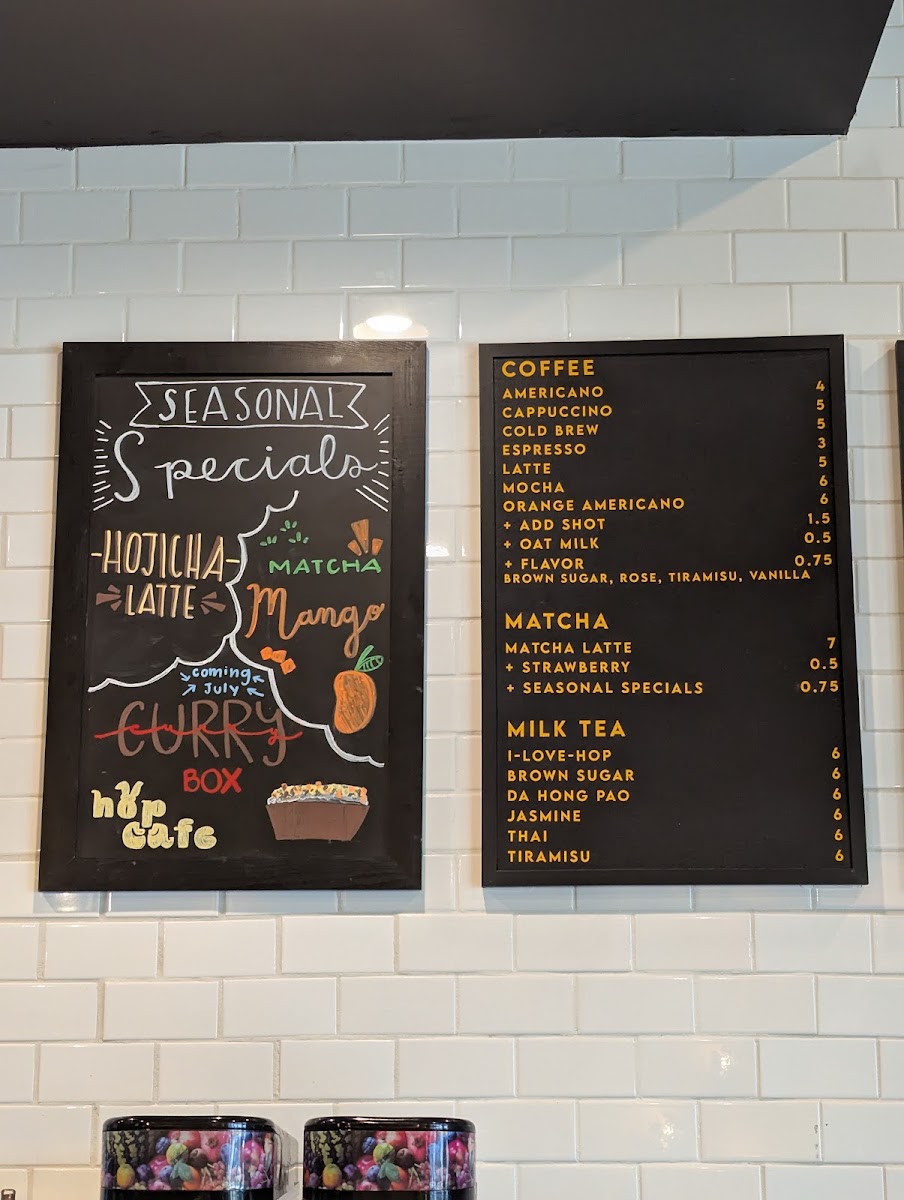 SEASONAL
Specials
-HOJICHA-
LATTE
MATCHA
Mango
coming
July
CURRY
BOX
hop
cafe
COFFEE
AMERICANO 4
CAPPUCCINO 5
COLD BREW 5
ESPRESSO 3
LATTE 5
MOCHA 6
ORANGE AMERICANO 6
+ ADD SHOT 1.5
+ OAT MILK 0.5
+ FLAVOR 0.75
BROWN SUGAR, ROSE, TIRAMISU, VANILLA
MATCHA
MATCHA LATTE 7
+ STRAWBERRY 0.5
+ SEASONAL SPECIALS 0.75
MILK TEA
I-LOVE-HOP 6
BROWN SUGAR 6
DA HONG PAO 6
JASMINE 6
THAI 6
TIRAMISU 6